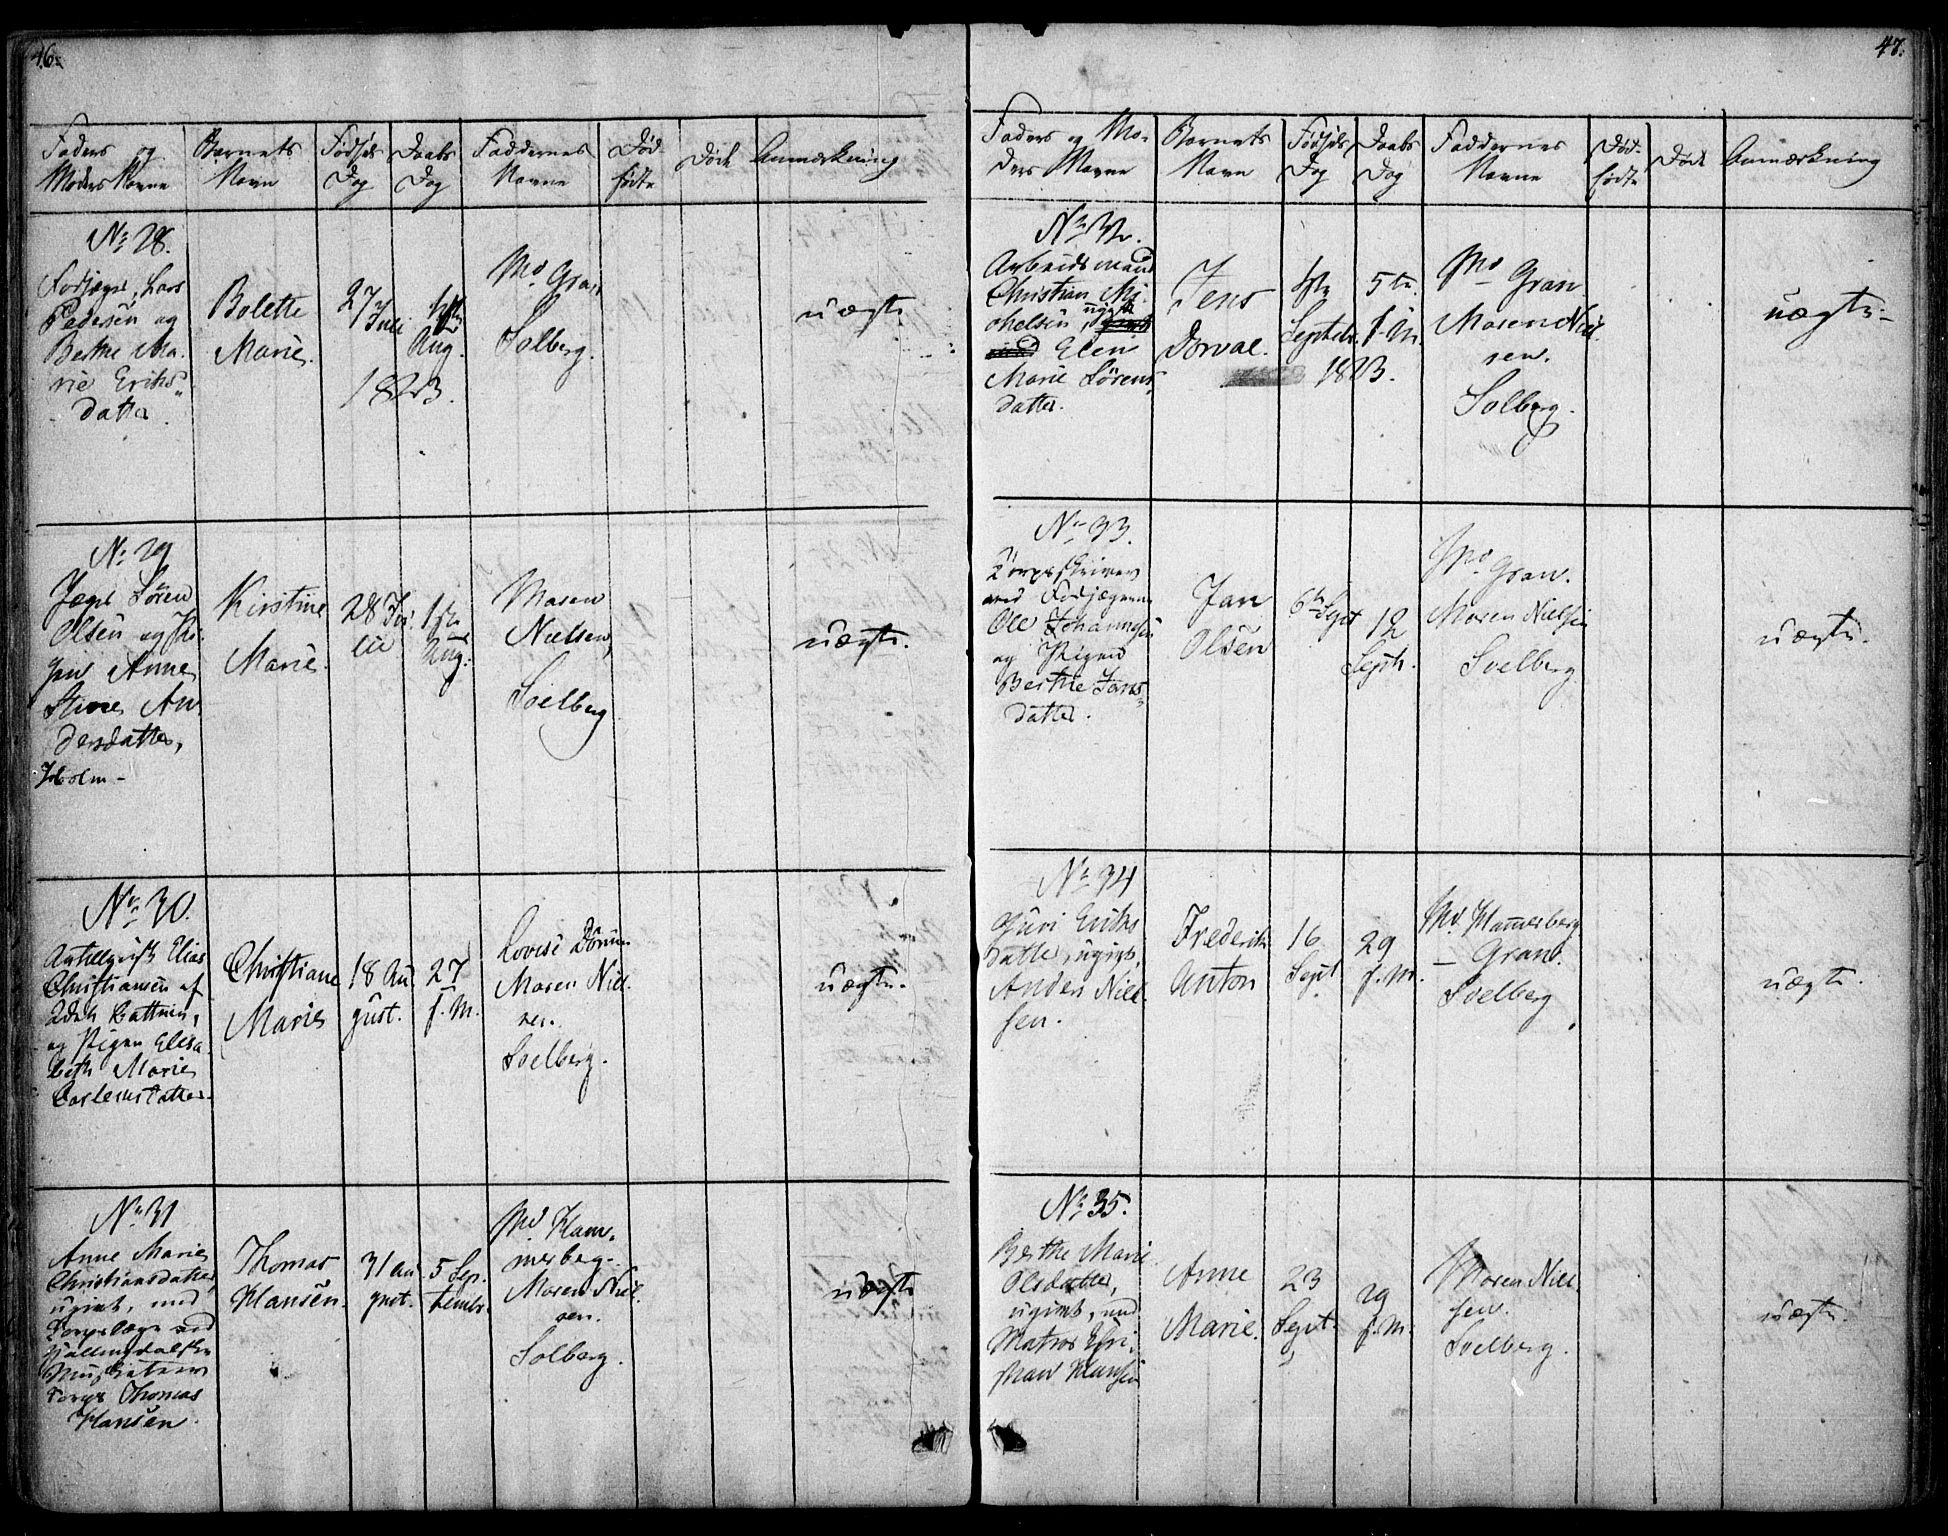 46.
Faders og
Moders Navne
Barnets
Navn
Fødsels
Dag
Daabs
Dag
Faddernes
Navne
Død-
fødte
Døde
Anmærkning
No 28.
Lars
Pedersen og
Berthe Ma-
rie Eriks-
datter
Bolette
Marie.
27
Juli
Aug.
1823.
Md Gran
Solberg.
uægte
No 29
Jæger Sören
Olsen og Pi-
gen Anne
Stine An-
dersdatter,
Holm -
Kirstine
Marie.
28 Ju-
lii
Aug.
Maren
Nielsen,
Soelberg
uægte.
No 30.
Elias
Christiansen af
og Pigen Elisa-
beth Marie
Christiane
Marie
18 Au
gust.
27
f. M.
Lovise
Maren Niel-
sen.
Soelberg.
uægte.
No 31
Anne Marie
Christiansdatter,
ugivt, med
Corps Thomas
Hansen.
Thomas
Hansen.
31 Au
gust.
5 Sep-
tembr.
Md. Ham-
merberg.
Maren Niel-
sen.
Solberg.
uægte
47.
Faders og Mo-
ders Navne
Barnets
Navn
Fødsels
Dag
Daabs
Dag
Faddernes
Navne
Død-
fødte
Døde
Anmærkning
No 32.
Arbeidsmand
Christian Mi-
chelsen ugivt
Elen
Marie Sörens-
datter.
Jens
Dorval.
Septebr.
1823.
5te
f. M.
Md Gran
Maren Niel-
sen.
Solberg.
uægte-
No 33.
Corpsskriver
Ole Johannesen
og Pigen
Berthe Jans-
datter.
Jan
Olsen
6te Sept
12
Septb.
Md Gran.
Maren Nielsen
Soelberg
uægte.
No 34
Guri Eriks
datter, ugivt,
Anders Niel-
sen.
Frederik
Anton
16
Sept
29
f. M.
Md. Hamerberg
- Gran.
Soelberg
uægte.
No 35.
Berthe Marie
Olsdatter,
ugivt, med
Matros Chri-
stian Hansen
Anne
Marie.
23
Sept.
29
f. M.
Maren Niel-
sen.
Soelberg.
uægte.